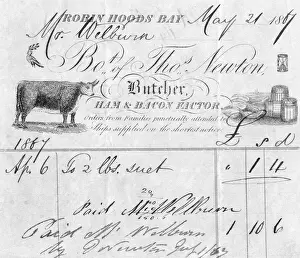 ROBIN HOODS BAY May 21 1867
Mr. Welburn
Bot. of Thos. Newton,
Butcher,
HAM & BACON FACTOR
orders from Families punctually attended to
Ships supplied on the shortest notice.
1867 £ s d
Ap 6 To 2 lbs. suet " 1 4
Paid Mr Welburn
Paid Mr. Welburn 1 10 6
by Newton